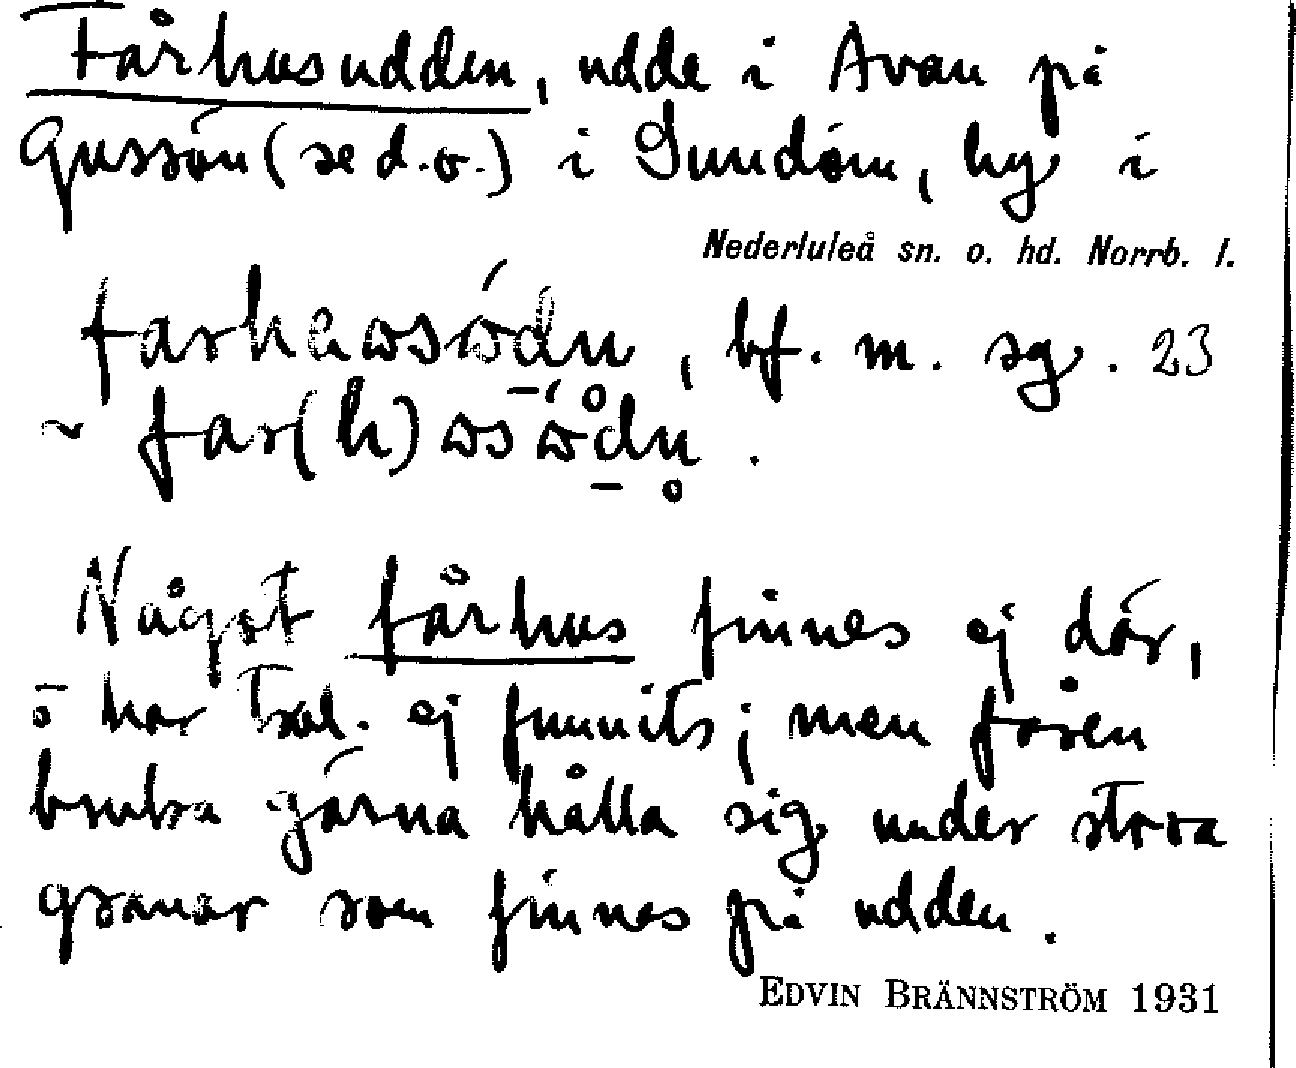 Fårhusudden, udde i Avan på
Gussön (se d.o.) i Sundom, by i
Nederluleå sn. o. hd. Norrb. l.
, bf. m. sg. 23
~
Något fårhus finnes ej där,
o har tral. ej funnits; men fåren
bruka gärna hålla sig under stora
granar som finnes på udden.
EDVIN BRÄNNSTRÖM 1931